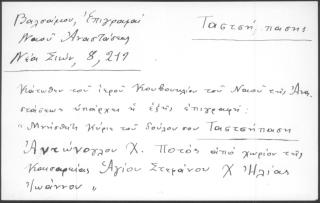 Βαλσάμου, Ἐπιγραφαί
Ναοῦ Ἀναστάσεως
Νέα Σιών, 8, 217
Τατσήπασης
Κάτωθεν τοῦ ἱεροῦ Κουβουκλίου τοῦ Ναοῦ τῆς Ἀνα-
στάσεως ὑπάρχει ἡ ἑξῆς ἐπιγραφή:
"Μνήσθητι Κύριε τοῦ δούλου σου Τατσήπαση
Χ. Ποτός ἀπό χωρίον τῆς
Ἁγίου Στεφάνου Χ Ἠλίας
Ἰωάννου"